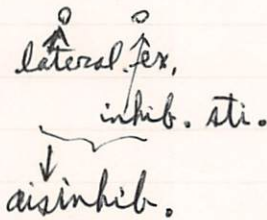 lateral. fex,
inhib. sti.
disinhib.